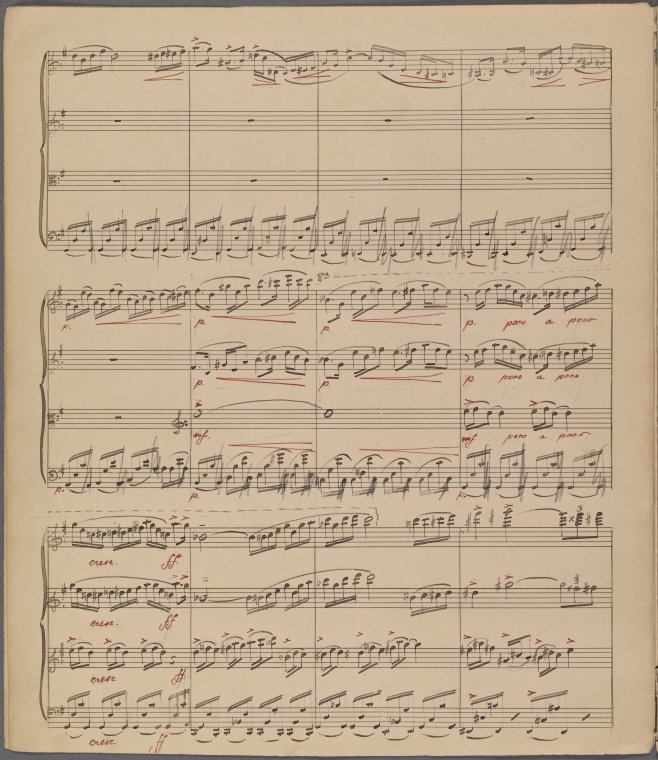 8va
p. p. p. p. poco a poco
p. p. p. poco a poco
mf. mf poco a poco
p. p. p.
cresc. ff
3
cresc. ff
3
cresc ff
cresc ff